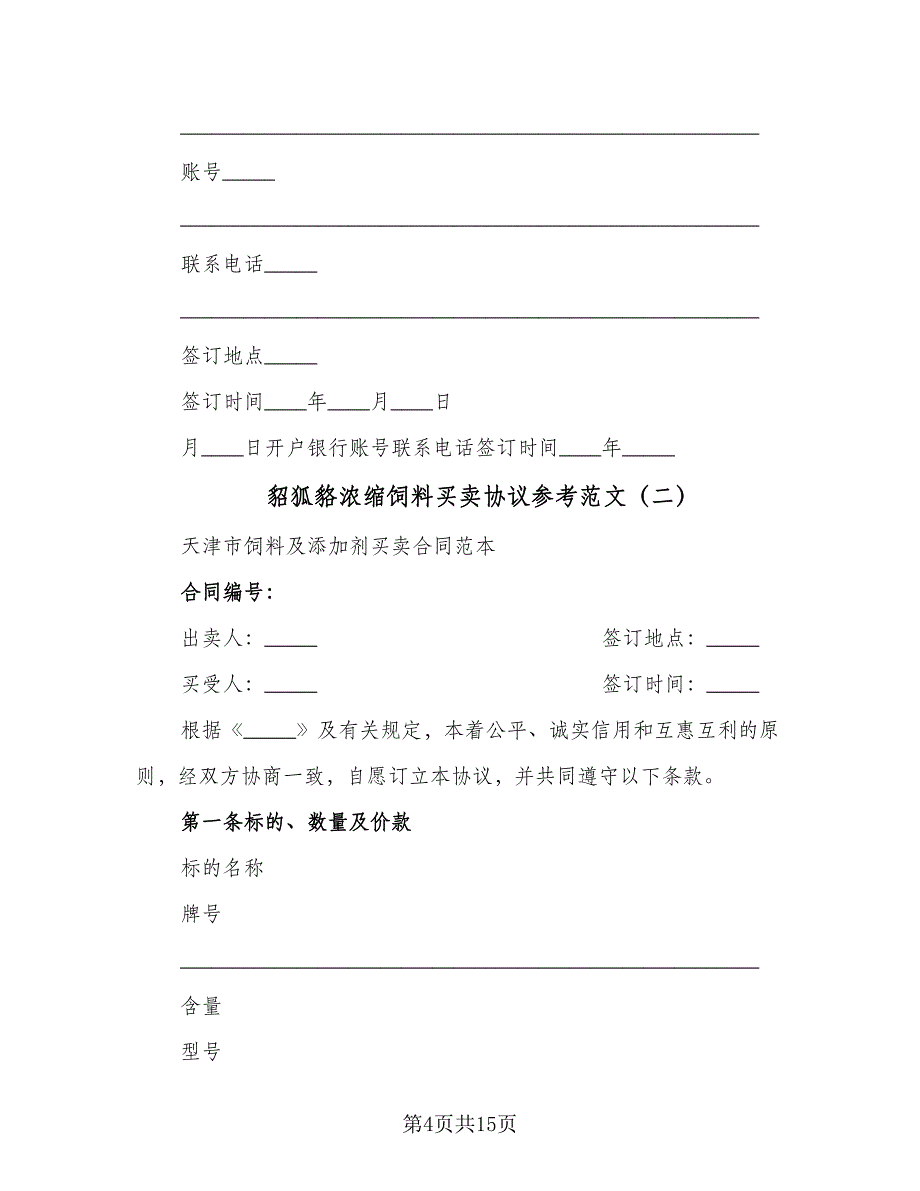 账号_____
联系电话_____
签订地点_____
签订时间____年____月____日
月____日开户银行账号联系电话签订时间____年_____
貂狐貉浓缩饲料买卖协议参考范文（二）
天津市饲料及添加剂买卖合同范本
合同编号：
出卖人：_____ 签订地点：_____
买受人：_____ 签订时间：_____
根据《_____》及有关规定，本着公平、诚实信用和互惠互利的原
则，经双方协商一致，自愿订立本协议，并共同遵守以下条款。
第一条标的、数量及价款
标的名称
牌号
含量
型号
第4页共15页